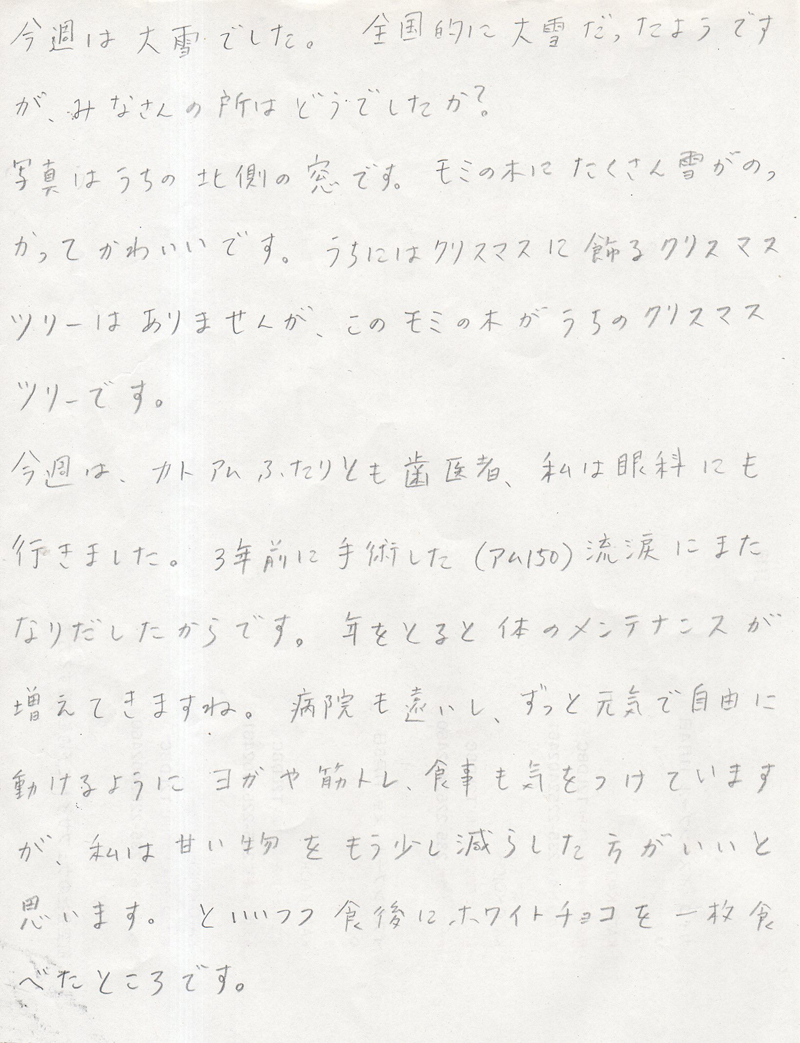 今週は大雪でした。 全国的に大雪だったようです
が、みなさんの所はどうでしたか?
写真はうちの北側の窓です。モミの木にたくさん雪がのっ
かってかわいいです。うちにはクリスマスに飾るクリスマス
ツリーはありませんが、このモミの木がうちのクリスマス
ツリーです。
今週は、カトアムふたりとも歯医者、私は眼科にも
行きました。3年前に手術した(アム150)流涙にまた
なりだしたからです。年をとると体のメンテナンスが
増えてきますね。病院も遠いし、ずっと元気で自由に
動けるようにヨガや筋トレ、食事も気をつけています
が、私は甘い物をもう少し減らした方がいいと
思います。といいつつ食後にホワイトチョコを一枚食
べたところです。